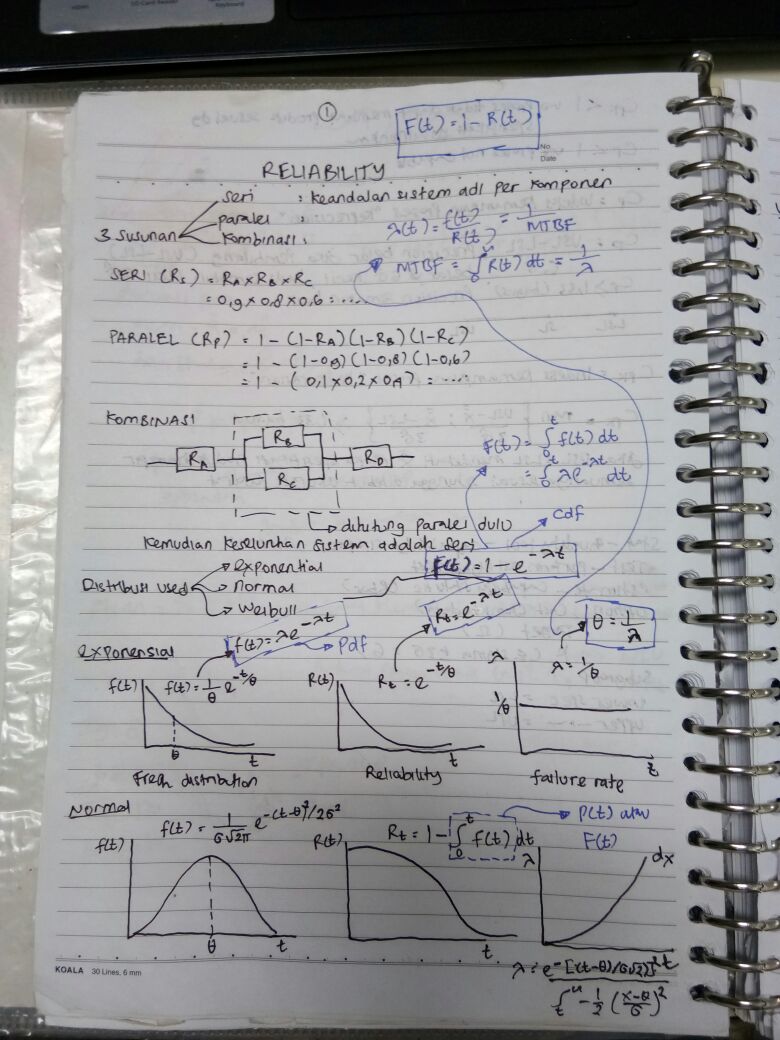 ①
F(t) = 1 - R(t)
No
Date
RELIABILITY
3 Susunan
seri : Keandalan sistem adl per komponen
paralel :
Kombinasi :
λ(t) = f(t)/R(t) = 1/MTBF
MTBF = ∫₀^∞ R(t) dt = 1/λ
SERI (Rs) = RA x RB x RC
= 0,9 x 0,8 x 0,6 = ....
PARALEL (Rp) = 1 - (1-RA)(1-RB)(1-RC)
= 1 - (1-0,9)(1-0,8)(1-0,6)
= 1 - (0,1 x 0,2 x 0,4) = ....
KOMBINASI
RA
RB
RC
RD
F(t) = ∫₀^t f(t) dt
= ∫₀^t λe^-λt dt
→ dihitung paralel dulu
cdf
Kemudian keseluruhan sistem adalah seri
F(t) = 1 - e^-λt
Distribusi used
exponential
Normal
Weibull
f(t) = λe^-λt
pdf
Rt = e^-λt
θ = 1/λ
exponensial
f(t)
f(t) = 1/θ e^-t/θ
θ
t
R(t)
Rt = e^-t/θ
t
λ
λ = 1/θ
1/θ
t
Fresh distribution
Reliability
failure rate
Normal
f(t) = 1/(σ√2π) e^-(t-θ)²/2σ²
Rt = 1 - ∫₀^t f(t) dt
→ P(t) atau
F(t)
f(t)
θ
t
R(t)
t
λ
dx
t
λ = e^-[(t-θ)/σ√2)]²
∫ₜ^∞ - 1/2 (x-θ/σ)²
KOALA 30 Lines, 6 mm